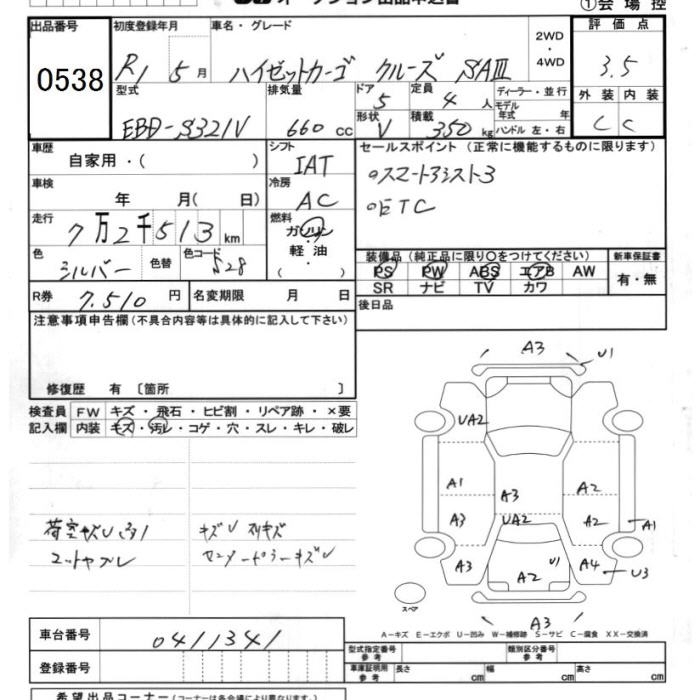 ①会 場 控
出品番号 初度登録年月 車名・グレード 2WD・4WD 評価点
0538 R1 5 月 ハイゼットカーゴ クルーズ SAⅢ 3.5
型式 排気量 ドア 5 定員 4 人 ディーラー・並行 外装 内装
モデル年式 年
EBD-S321V 660 cc 形状 V 積載 350 kg ハンドル 左・右 C C
車歴 自家用・( ) シフト IAT セールスポイント (正常に機能するものに限ります)
車検 年 月( 日) 冷房 AC ○スマートアシスト3
○ETC
走行 7万2千513 km 燃料 ガソリン
軽油
・( )
色 シルバー 色替 色コード S28
装備品 (純正品に限り○をつけてください) 新車保証書
PS PW ABS エアB AW 有・無
SR ナビ TV カワ
R券 7.510 円 名変期限 月 日 後日品
注意事項申告欄 (不具合内容等は具体的に記入して下さい)
修復歴 有 〔箇所 〕
検査員 FW キズ・飛石・ヒビ割・リペア跡・×要
記入欄 内装 キズ・汚レ・コゲ・穴・スレ・キレ・破レ
A3 U1
UA2
A1 A3 A2
A3 UA2 A2 A1
A3 U1 A4 U3
A2
A3
荷室キズU キズU スリキズ
センターピラーキズU
スペア
A－キズ E－エクボ U－凹み W－補修跡 S－サビ C－腐食 XX－交換済
車台番号 0411341
登録番号
型式指定番号 参考 類別区分番号 参考
車庫証明用 参考 長さ cm 幅 cm 高さ cm
希望出品コーナー (コーナーは各会場により異なります)